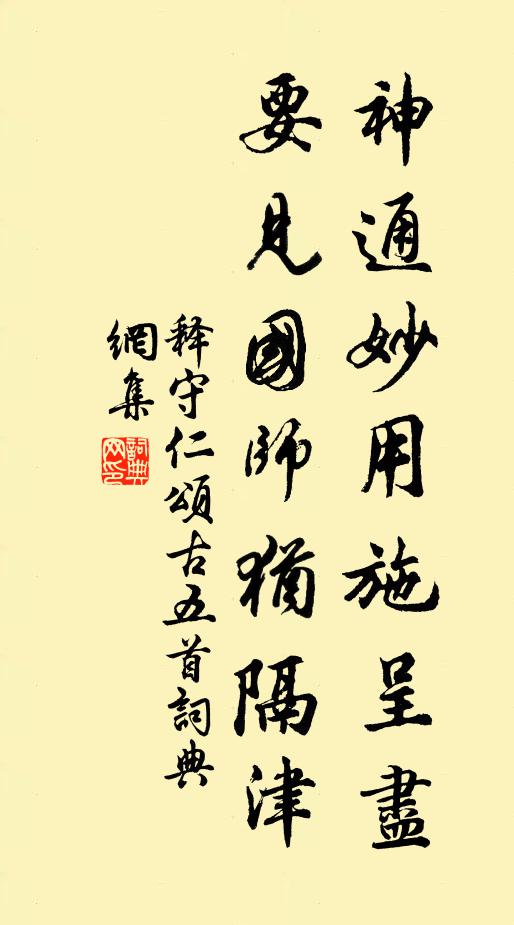 神通妙用施呈盡
要見國師猶隔津
释守仁頌古五首詞典
網集
詞典
网印